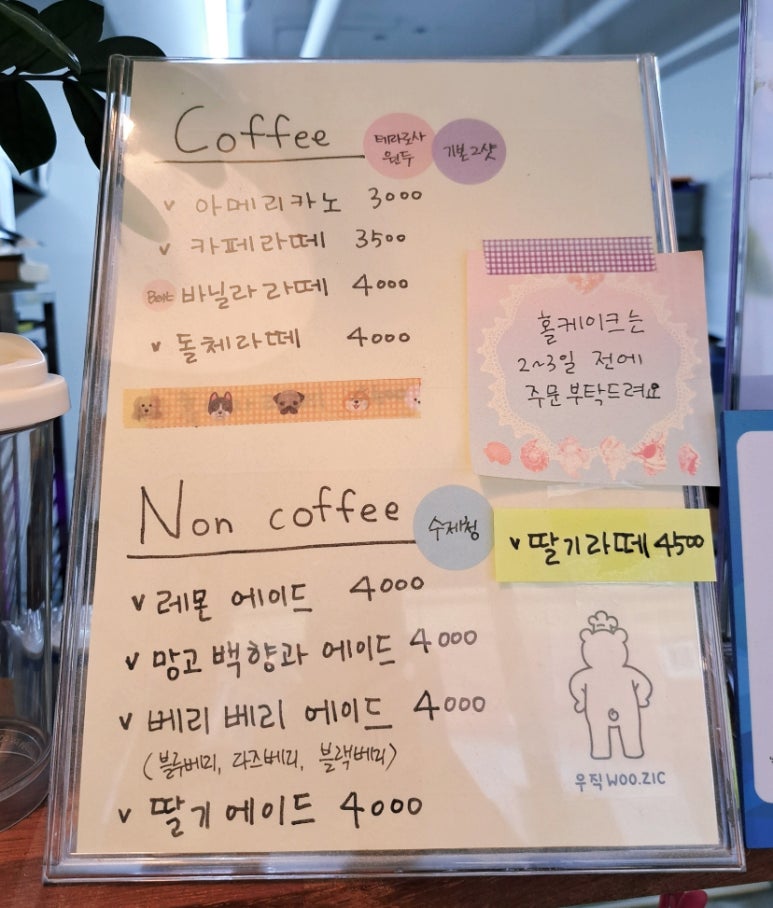 Coffee
테라로사
원두
기본 2샷
v 아메리카노 3000
v 카페라떼 3500
Best 바닐라 라떼 4000
v 돌체라떼 4000
홀케이크는
2~3일 전에
주문 부탁드려요
Non coffee
수제청
v 딸기라떼 4500
v 레몬 에이드 4000
v 망고 백향과 에이드 4000
v 베리베리 에이드 4000
(블루베리, 라즈베리, 블랙베리)
v 딸기 에이드 4000
우직 WOO.ZIC